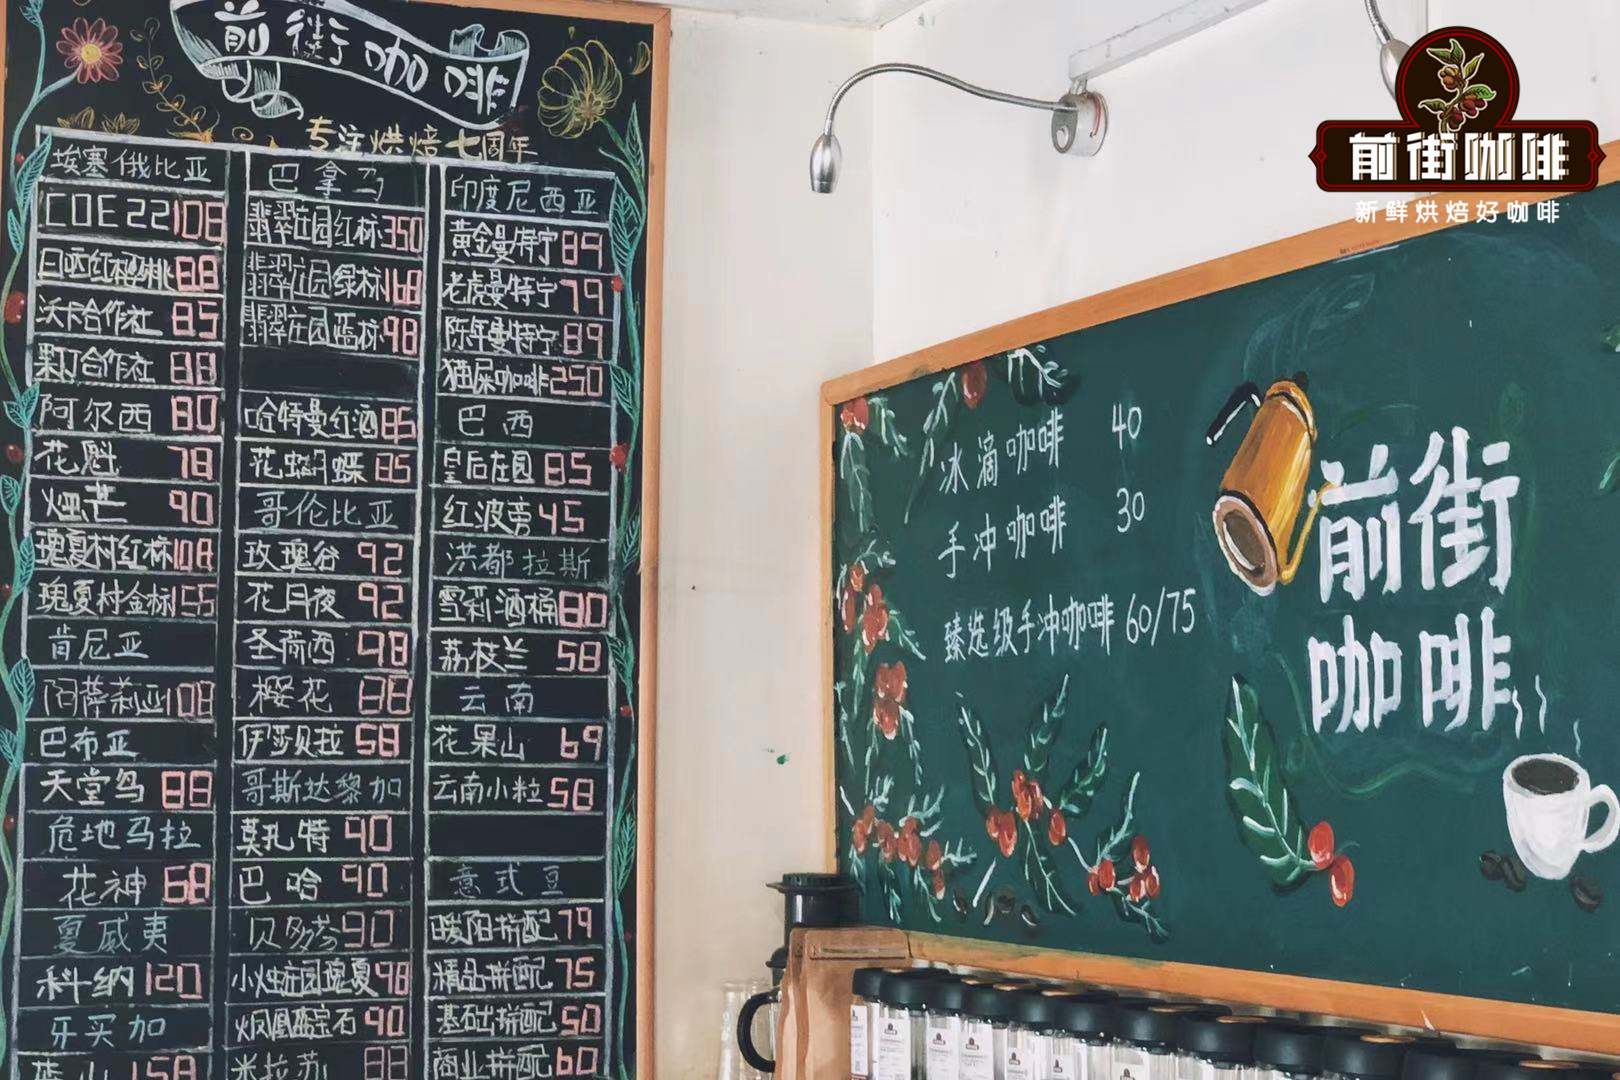 前街咖啡
专注烘焙七周年
埃塞俄比亚
COE22 108
日晒红樱桃 88
沃卡合作社 85
果丁丁合作社 88
阿尔西 80
花魁 78
烟芒 90
瑰夏村红标 108
瑰夏村金标 155
肯尼亚
阿萨莉亚 108
巴布亚
天堂鸟 88
危地马拉
花神 68
夏威夷
科纳 120
牙买加
蓝山 158
巴拿马
翡翠庄园红标 350
翡翠庄园绿标 168
翡翠庄园蓝标 98
哈特曼红酒 85
花蝴蝶 85
哥伦比亚
玫瑰谷 92
花月夜 92
圣荷西 98
樱花 88
伊莎贝拉 58
哥斯达黎加
莫扎特 90
巴哈 90
贝多芬 90
小烛庄园瑰夏 98
火凤凰蓝宝石 90
米拉苏 88
印度尼西亚
黄金曼特宁 89
老虎曼特宁 79
陈年曼特宁 89
猫屎咖啡 250
巴西
皇后庄园 85
红波旁 45
洪都拉斯
雪莉酒桶 80
荔枝兰 58
云南
花果山 69
云南小粒 58
意式豆
暖阳拼配 79
精品拼配 75
基础拼配 50
商业拼配 60
冰滴咖啡 40
手冲咖啡 30
臻选级手冲咖啡 60/75
前街
咖啡
前街咖啡
新鲜烘焙好咖啡